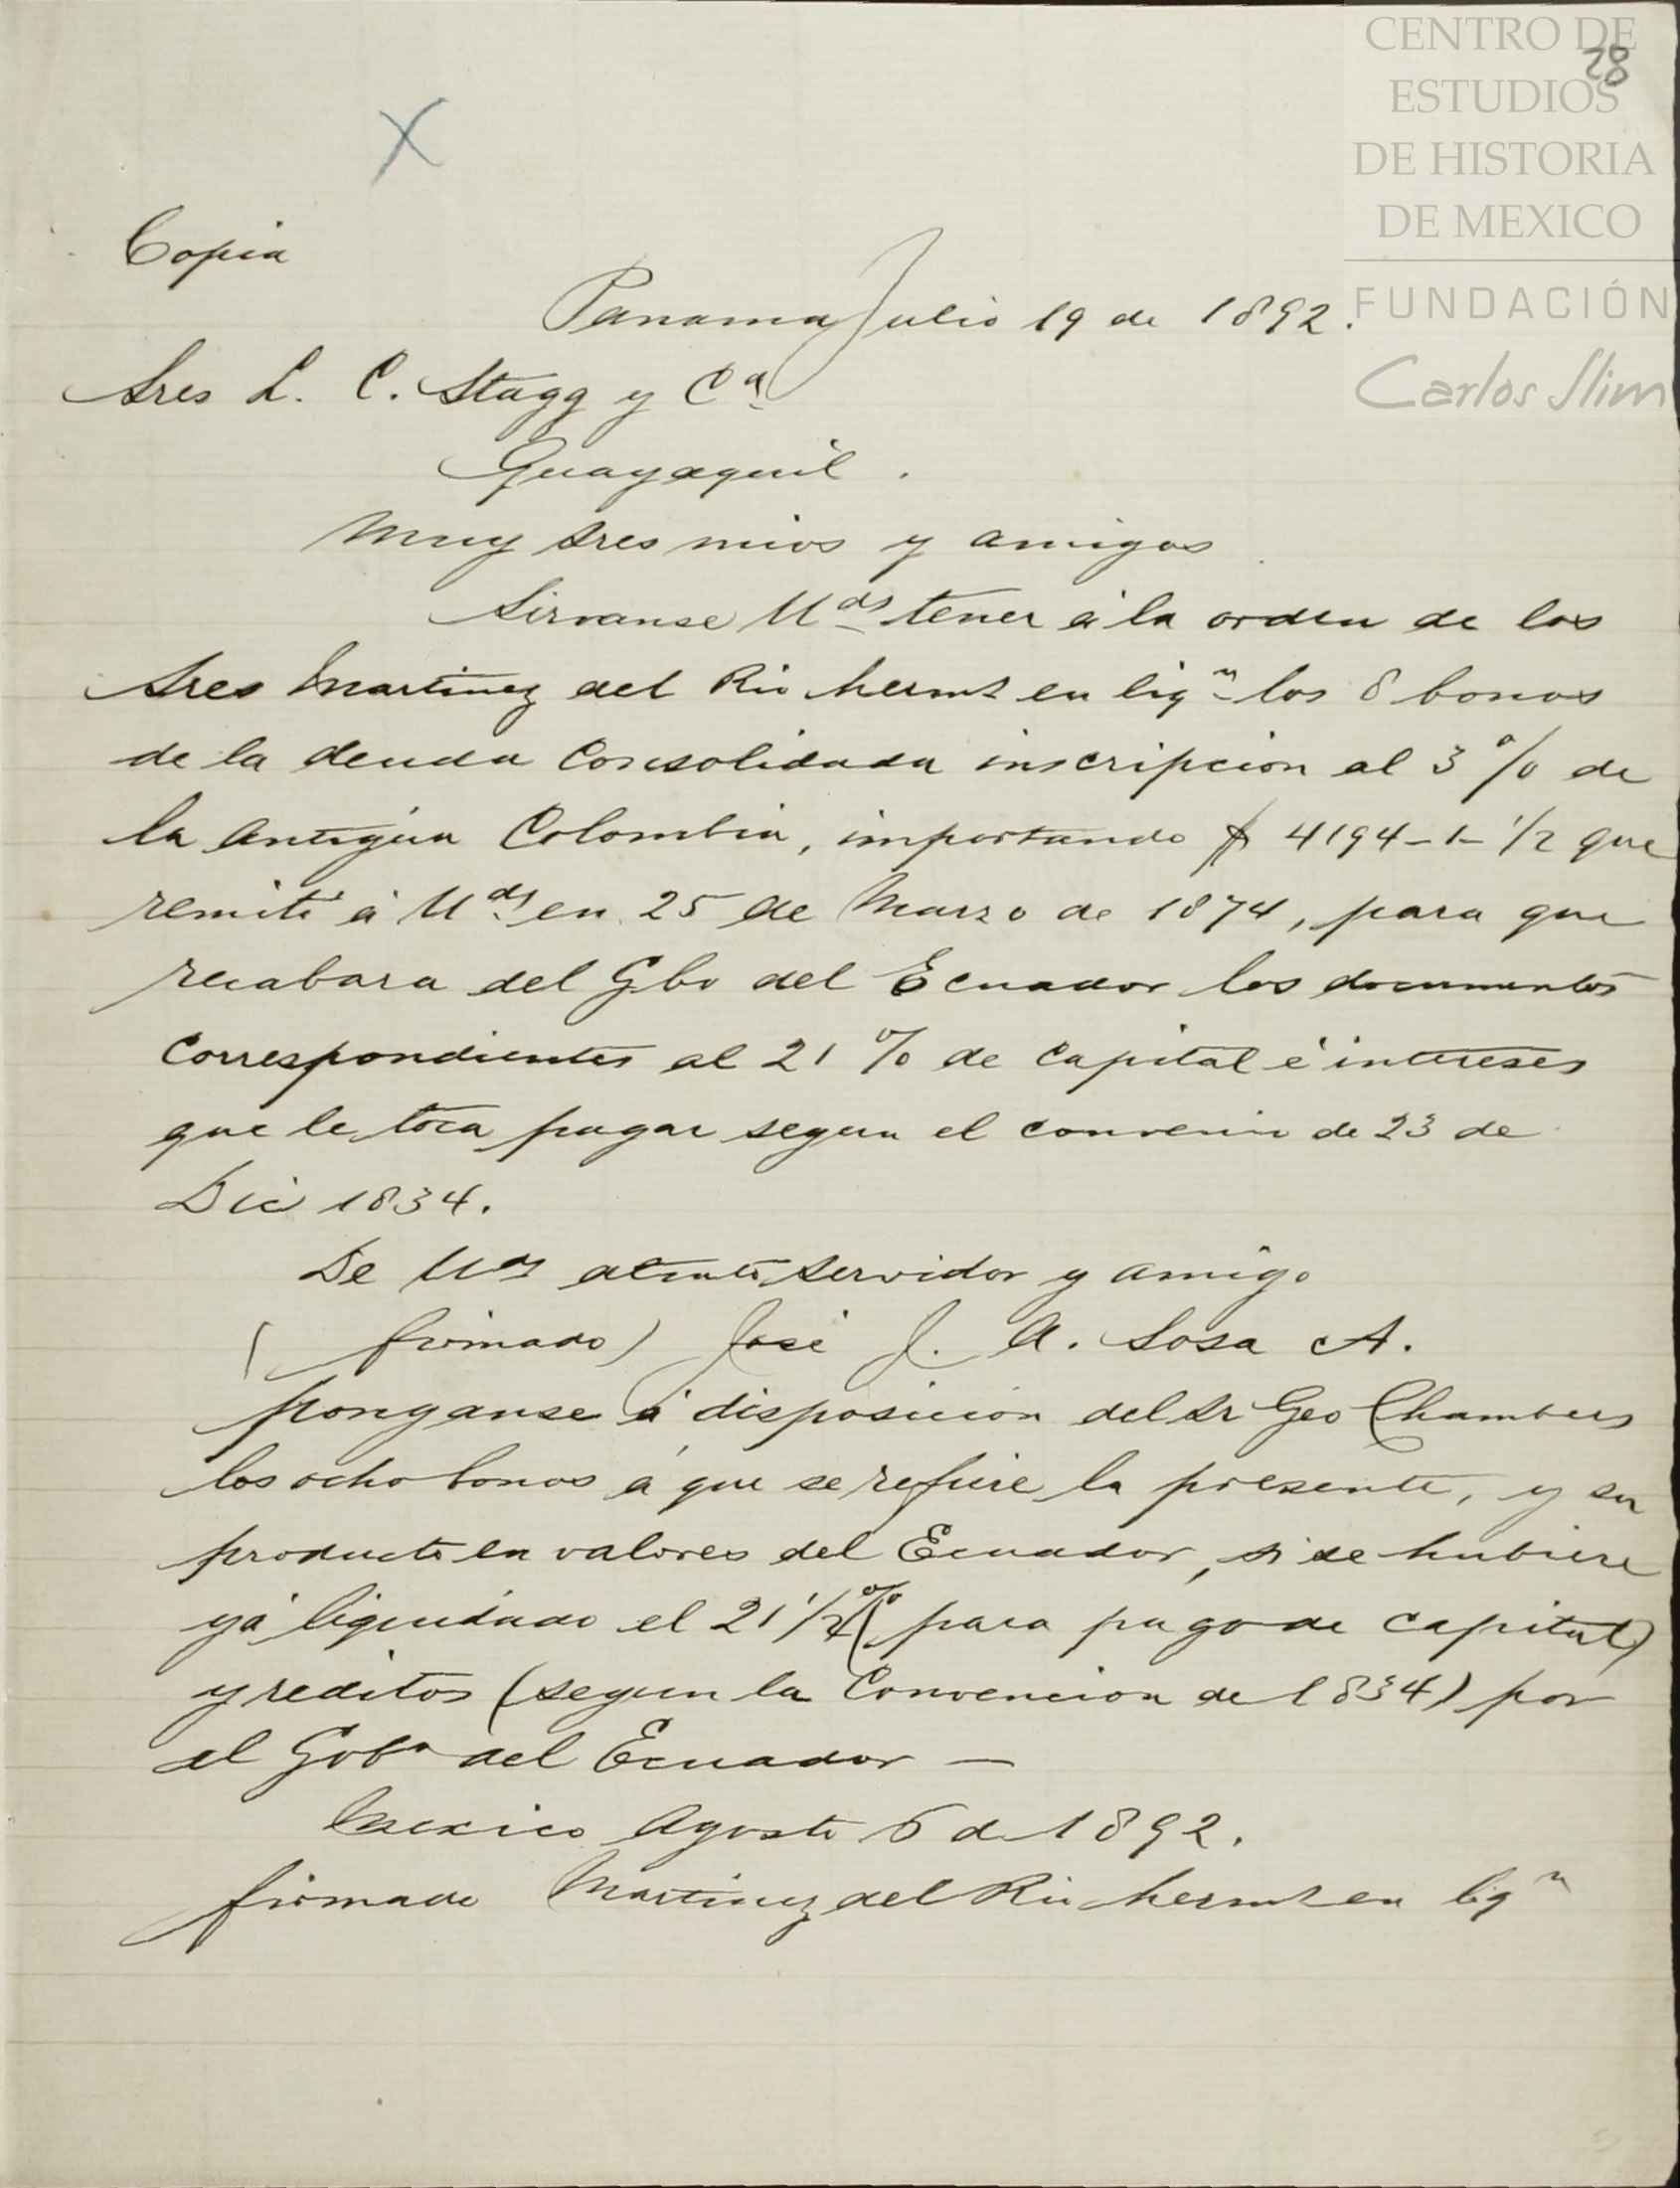 CENTRO DE
ESTUDIOS
DE HISTORIA
DE MEXICO
FUNDACIÓN
Carlos Slim
28
Copia
Panama Julio 19 de 1892.
Sres L. C. Stagg y Cª
Guayaquil.
Muy Sres mios y amigos
Sirvanse Uds tener á la orden de los
Sres Martinez del Rio hermꝰ en liqn los 8 bonos
de la deuda Consolidada inscripcion al 3 % de
la Antigua Colombia, importando $ 4194-1-1/2 que
remiti á Uds en 25 de Marzo de 1874, para que
recabara del Gbo del Ecuador los documentos
Correspondientes al 21 % de Capital é intereses
que le toca pagar segun el convenio de 23 de
Dic 1834.
De Uds atento servidor y amigo
(firmado) José J. A. Sosa A.
Ponganse á disposicion del Sr Geo Chambers
los ocho bonos á que se refiere la presente, y su
producto en valores del Ecuador, si se hubiere
yá liquidado el 21 1/2 % (para pago de capital)
y reditos (segun la Convencion de 1834) por
el Gobº del Ecuador —
Mexico Agosto 6 de 1892.
firmado Martinez del Rio hermꝰ en liqn